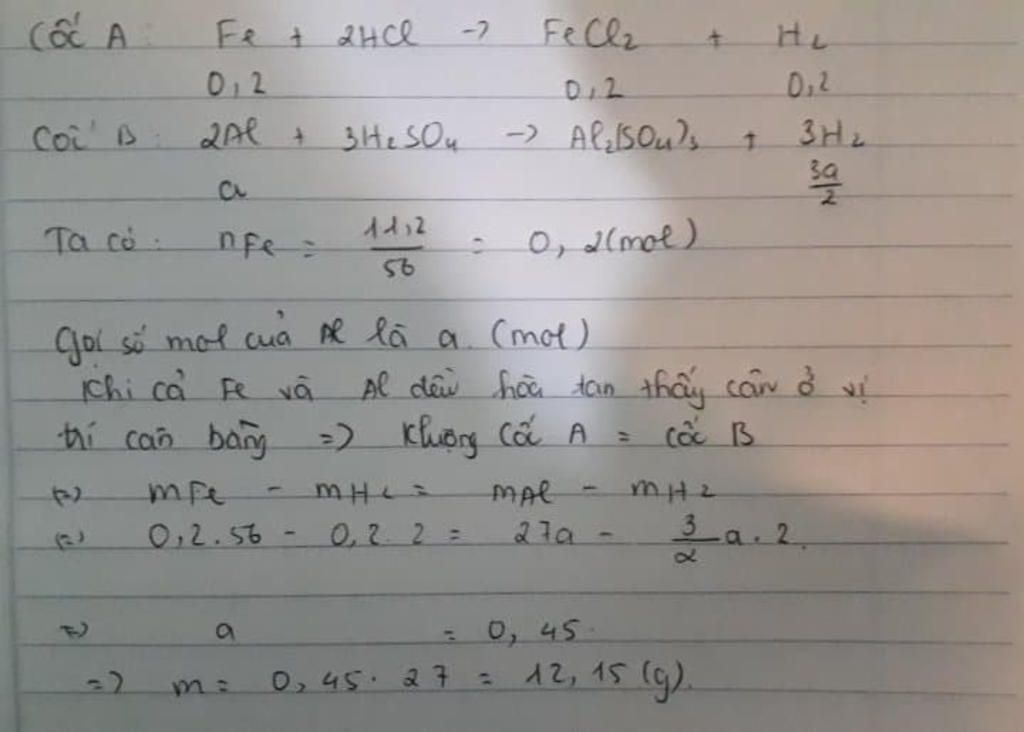 Cốc A: Fe + 2HCl → FeCl2 + H2
0,2 0,2 0,2
Cốc B: 2Al + 3H2SO4 → Al2(SO4)3 + 3H2
a 3a/2
Ta có: nFe = 11,2/56 = 0,2(mol)
Gọi số mol của Al là a (mol)
Khi cả Fe và Al đều hòa tan thấy cân ở vị
trí cân bằng => Khượng Cốc A = Cốc B
(=) mFe - mH2 = mAl - mH2
(=) 0,2.56 - 0,2.2 = 27a - 3/2 a.2.
=> a = 0,45.
=> m = 0,45.27 = 12,15 (g).